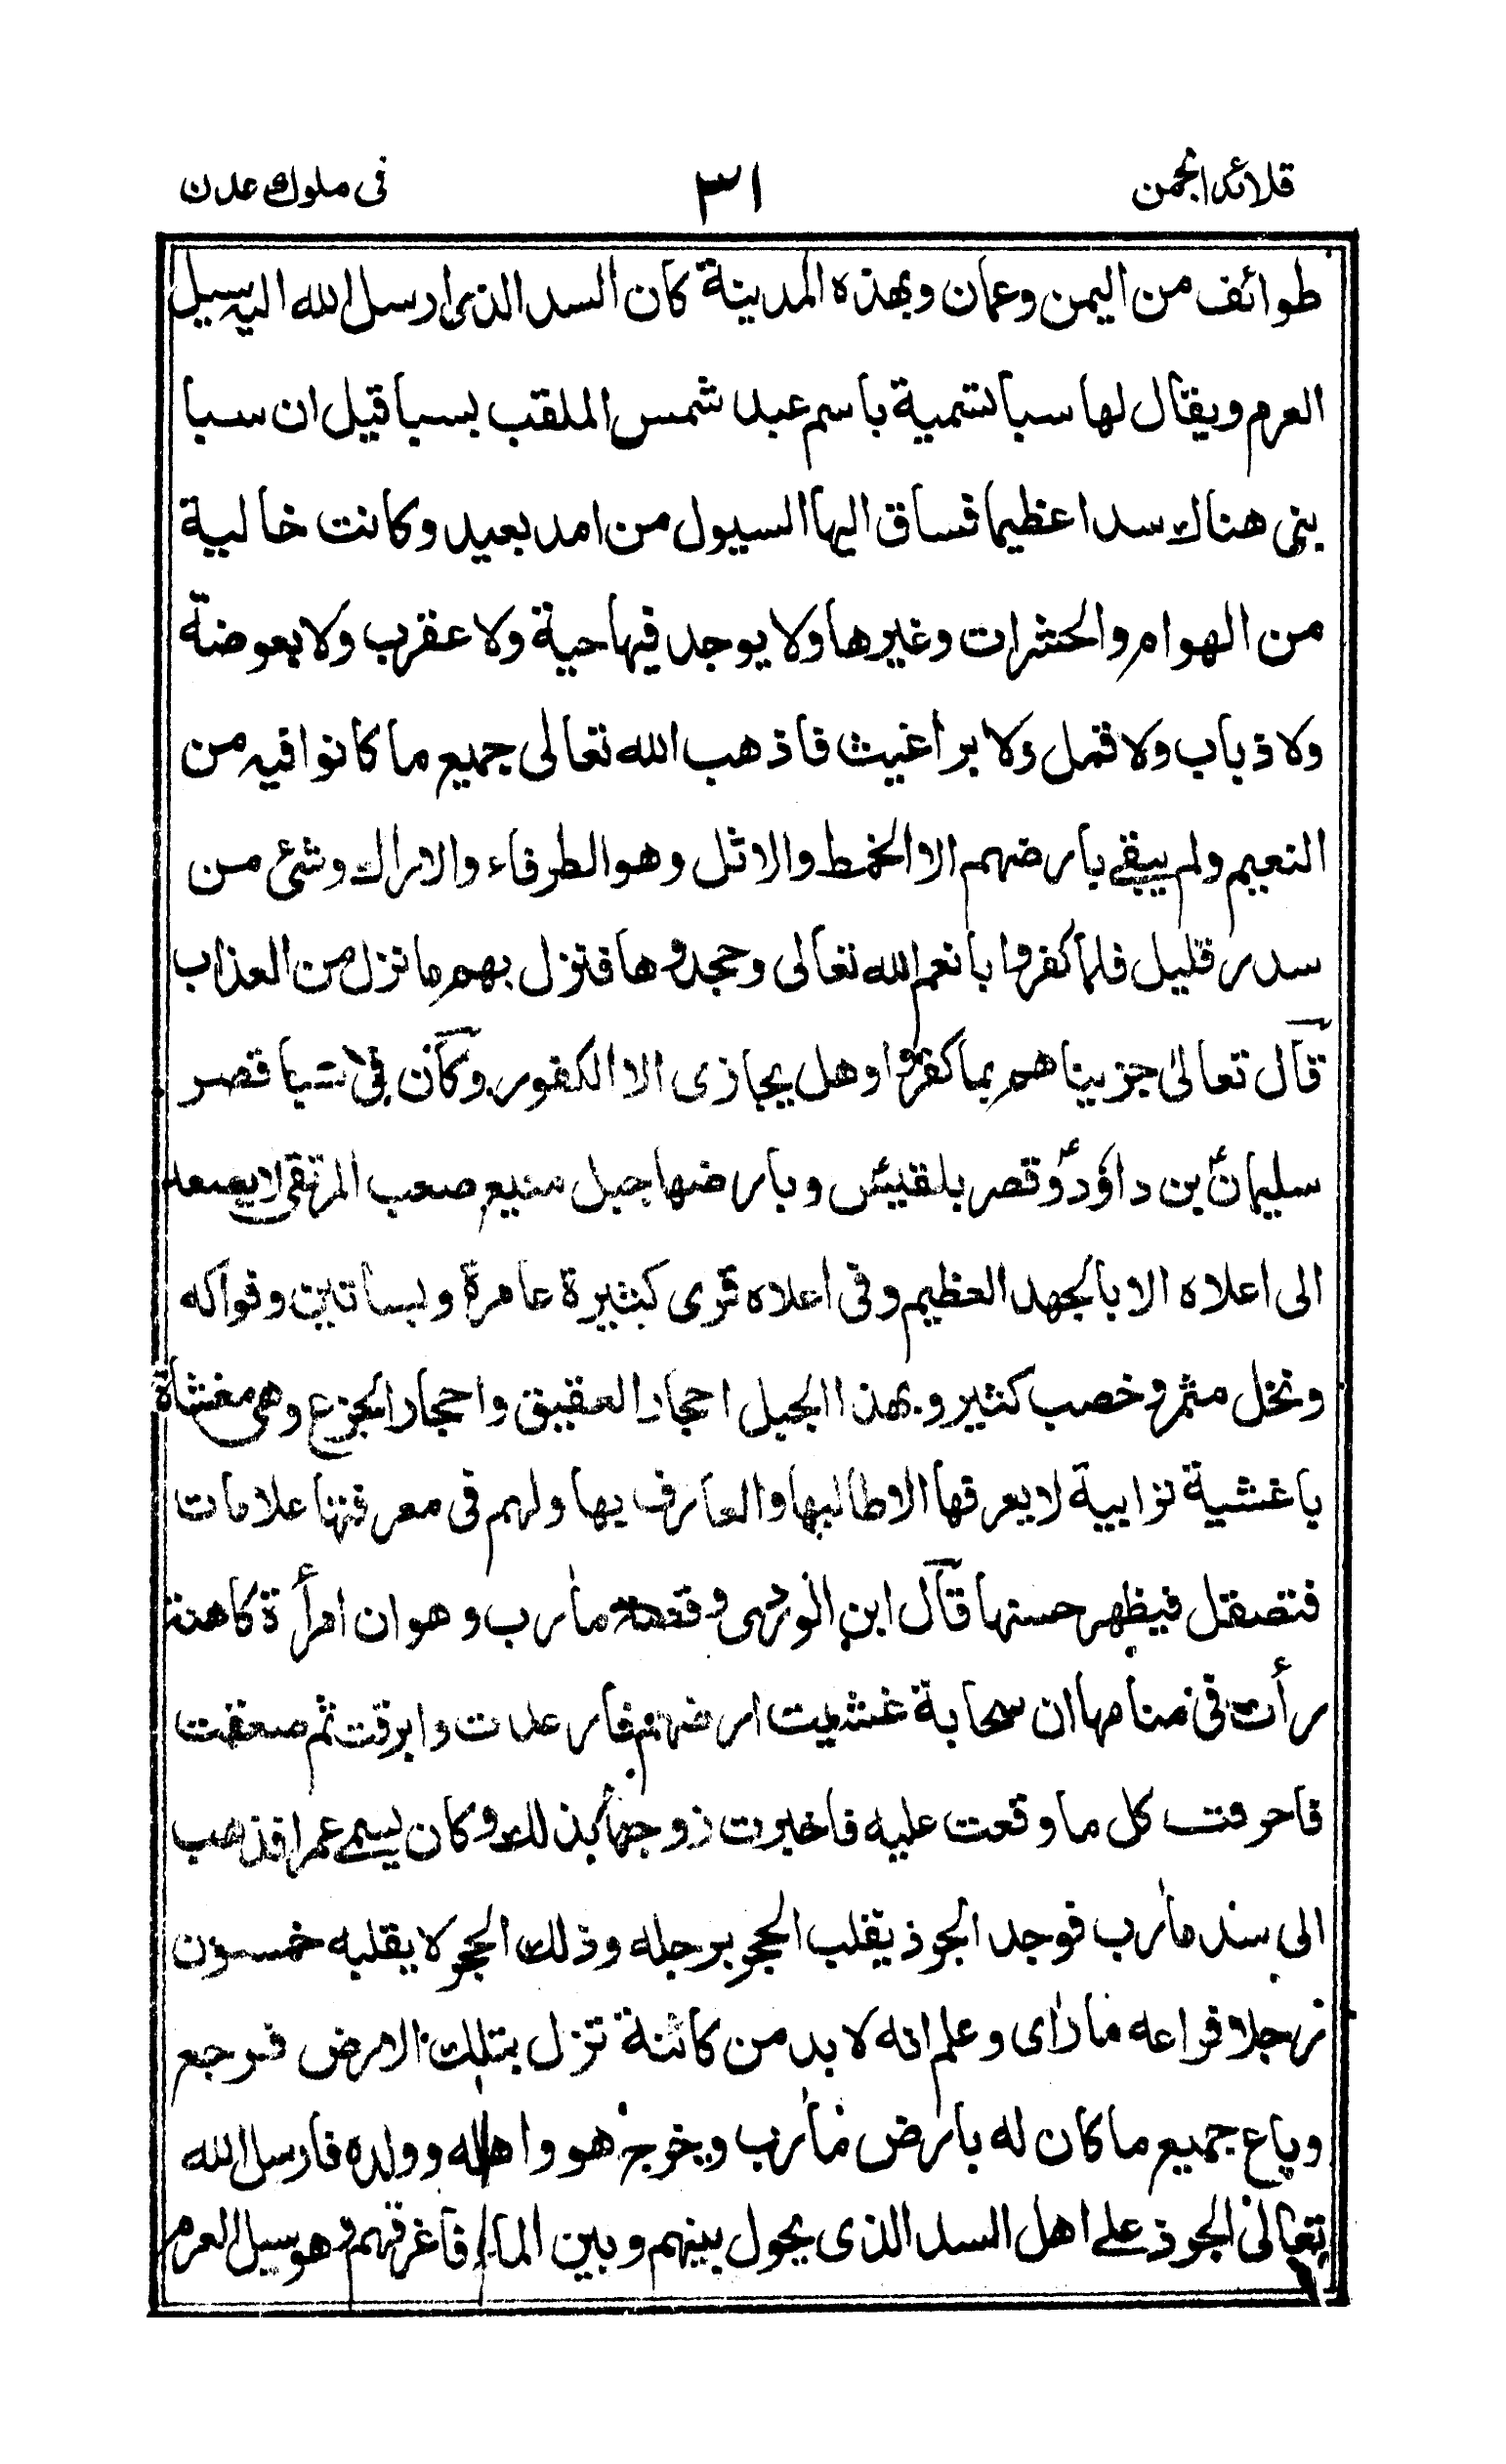 قلائد الجمن ٣١ فى ملوك عدن
طوائف من اليمن وعمان وبهذه المدينة كان السد الذى ارسل الله اليه سيل
العرم ويقال لها سبا تسمية باسم عبد شمس الملقب بسبا قيل ان سبا
بنى هناك سدا عظيما فساق اليها السيول من امد بعيد وكانت خالية
من الهوام والحشرات وغيرها ولا يوجد فيها حية ولا عقرب ولا بعوضة
ولا ذباب ولا قمل ولا براغيث فاذهب الله تعالى جميع ما كانوا فيه من
النعيم ولم يبقے بارضهم الا الخمط والاثل وهو الطرفاء والاراك وشئ من
سدر قليل فلما كفروا بانعم الله تعالى وجحدوها فنزل بهم ما نزل من العذاب
قال تعالىٰ جزيناهم بما كفروا وهل يجازى الا الكفور وكان فى سبا قصر
سليمانؑ بن داؤدؑ وقصر بلقيس وبارضها جبل منيع صعب المرتقى لا يصعد
الى اعلاه الا بالجهد العظيم وفى اعلاه قرى كثيرة عامرة وبساتين وفواكه
ونخل مثمر وخصب كثير وبهذا الجبل احجار العقيق واحجار الجزع وهى مغشاة
باغشية ترابية لا يعرفها الا طالبها والعارف بها ولهم فى معرفتها علامات
فتصقل فيظهر حسنها قال ابن الوردى وقصة مأرب وهو ان امرأة كاهنة
رأت فى منامها ان سحابة غشيت ارضهم فارعدت وابرقت ثم صعقت
فاحرقت كل ما وقعت عليه فاخبرت زوجها بذلك وكان يسمے عمرا فذهب
الى سند مأرب فوجد الجرذ يقلب الحجر برجله وذلك الحجر لا يقلبه خمسون
رجلا فراعه ما رأى وعلم انه لا بد من كائنة تنزل بتلك الارض فرجع
وباع جميع ما كان له بارض مأرب وخرج هو واهله وولده فارسل الله
تعالىٰ الجرذ علے اهل السد الذى يحول بينهم وبين الماء فاغرقهم وهو سيل العرم